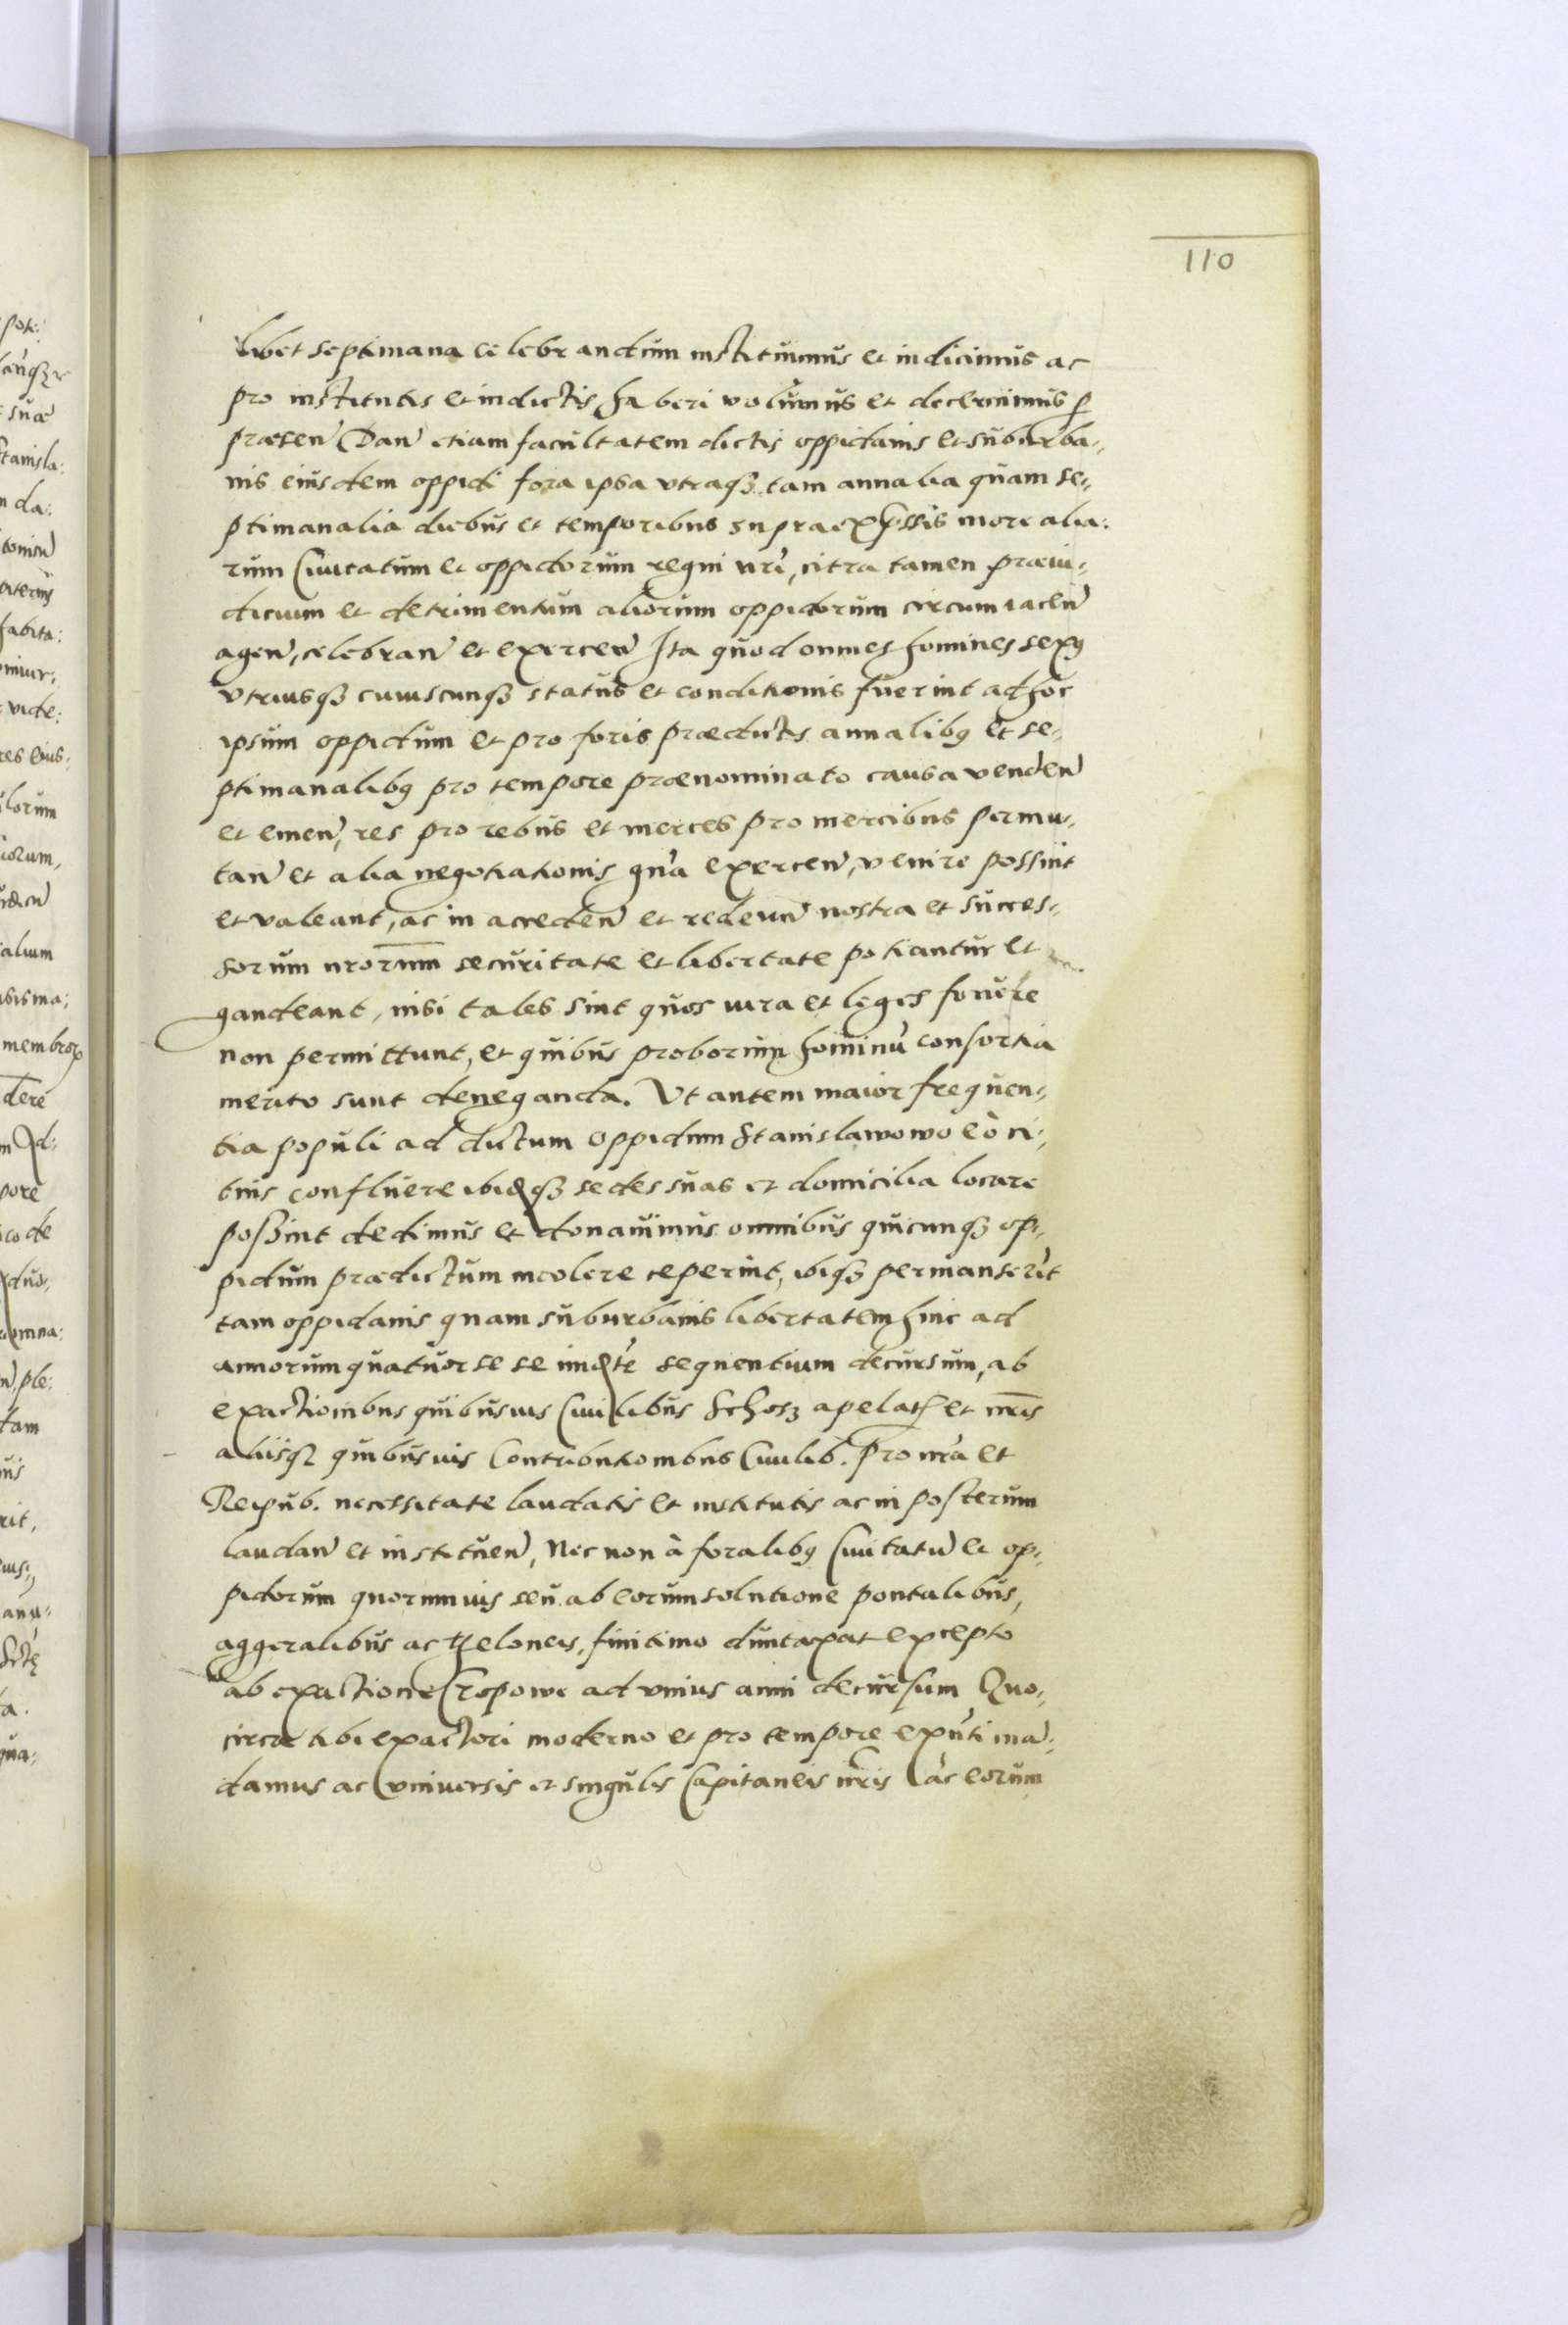 110
libet septimana celebrandum instituimus et indicimus ac
pro institutis et indictis haberi volumus et decernimus p
præsen Dan etiam facultatem dictis oppidanis et suburba-
nis eiusdem oppidi fora ipsa vtraqȝ tam annalia quam se-
ptimanalia diebus et temporibus supra expssis more alia:
rum Ciuitatum et oppidorum regni nri, citra tamen præiu-
dicium et detrimentum aliorum oppidorum circumiacen
agen, celebran et exercen Ita quod omnes homines sexꝰ
vtriusqȝ cuiuscunqȝ status et conditionis fuerint ad hoc
ipsum oppidum et pro foris prædictis annalibꝰ et se-
ptimanalibꝰ pro tempore prænominato causa venden
et emen, res pro rebus et merces pro mercibus permu-
tan et alia negotiationis gna exercen, venire possint
et valeant, ac in acceden et redeun nostra et succes-
sorum nrorum securitate et libertate potiantur et
gaudeant, nisi tales sint quos iura et leges fouere
non permittunt, et quibus proborum hominu consortia
merito sunt deneganda. Vt autem maior frequen-
tia populi ad dictum oppidum Stanislawowo eò ci-
tius confluere ibidqȝ sedes suas et domicilia locare
possint dedimus et donauimus omnibus quicunqȝ op-
pidum prædictum incolere ceperint, ibiqȝ permanserit
tam oppidanis quam suburbanis libertatem hinc ad
annorum quatuor se se imdte sequentium decursum, ab
exactionibus quibusuis Ciuilibus Schosz apelat et nris
aliisqȝ quibusuis Contributionibus Ciuilib. Pro nra et
Reipub. necessitate laudatis et institutis ac in posterum
laudan et instituen, Nec non à foralibꝰ Ciuitatu et op-
pidorum quorumuis seu ab eorum solutione pontalibus,
aggeralibus ac theloneis, finitimo duntaxat excepto
ab exactione Czopowe ad vnius anni decursum Quo-
circa tibi exactori moderno et pro tempore exnti ma-
damus ac vniuersis et singulis Capitaneis nris ac eorum